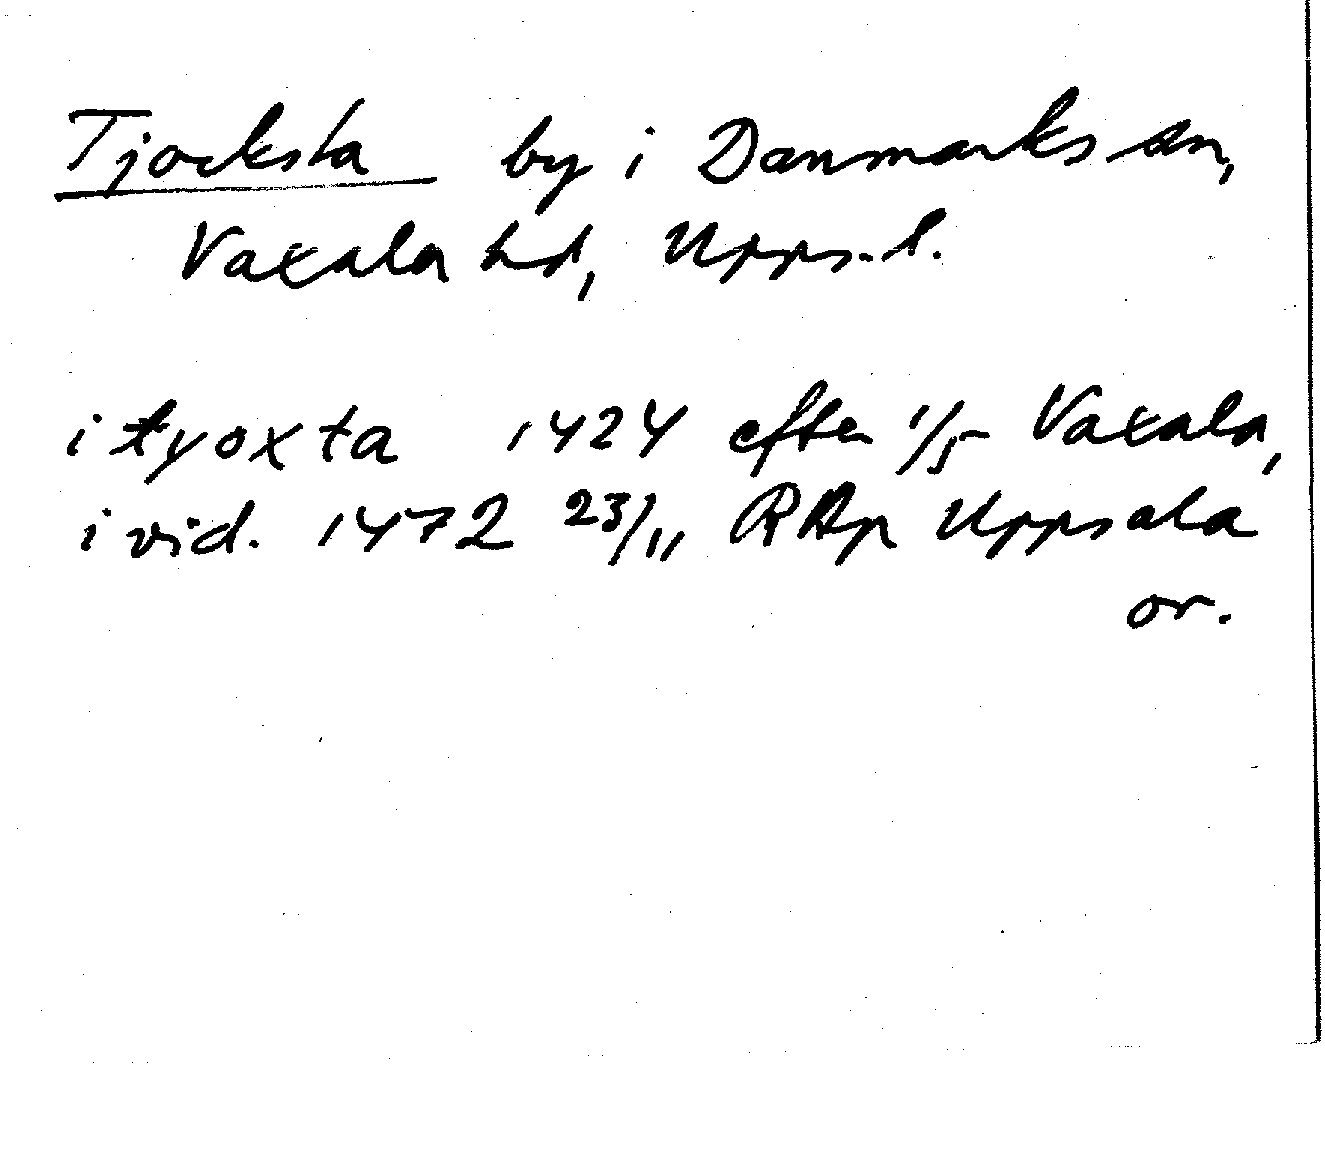 Tjocksta by i Danmarks sn,
Vaxala hd, Upps. l.
i tyoxta 1424 efter 1/5 Vaxala,
i vid. 1472 23/11 RAp Uppsala
or.